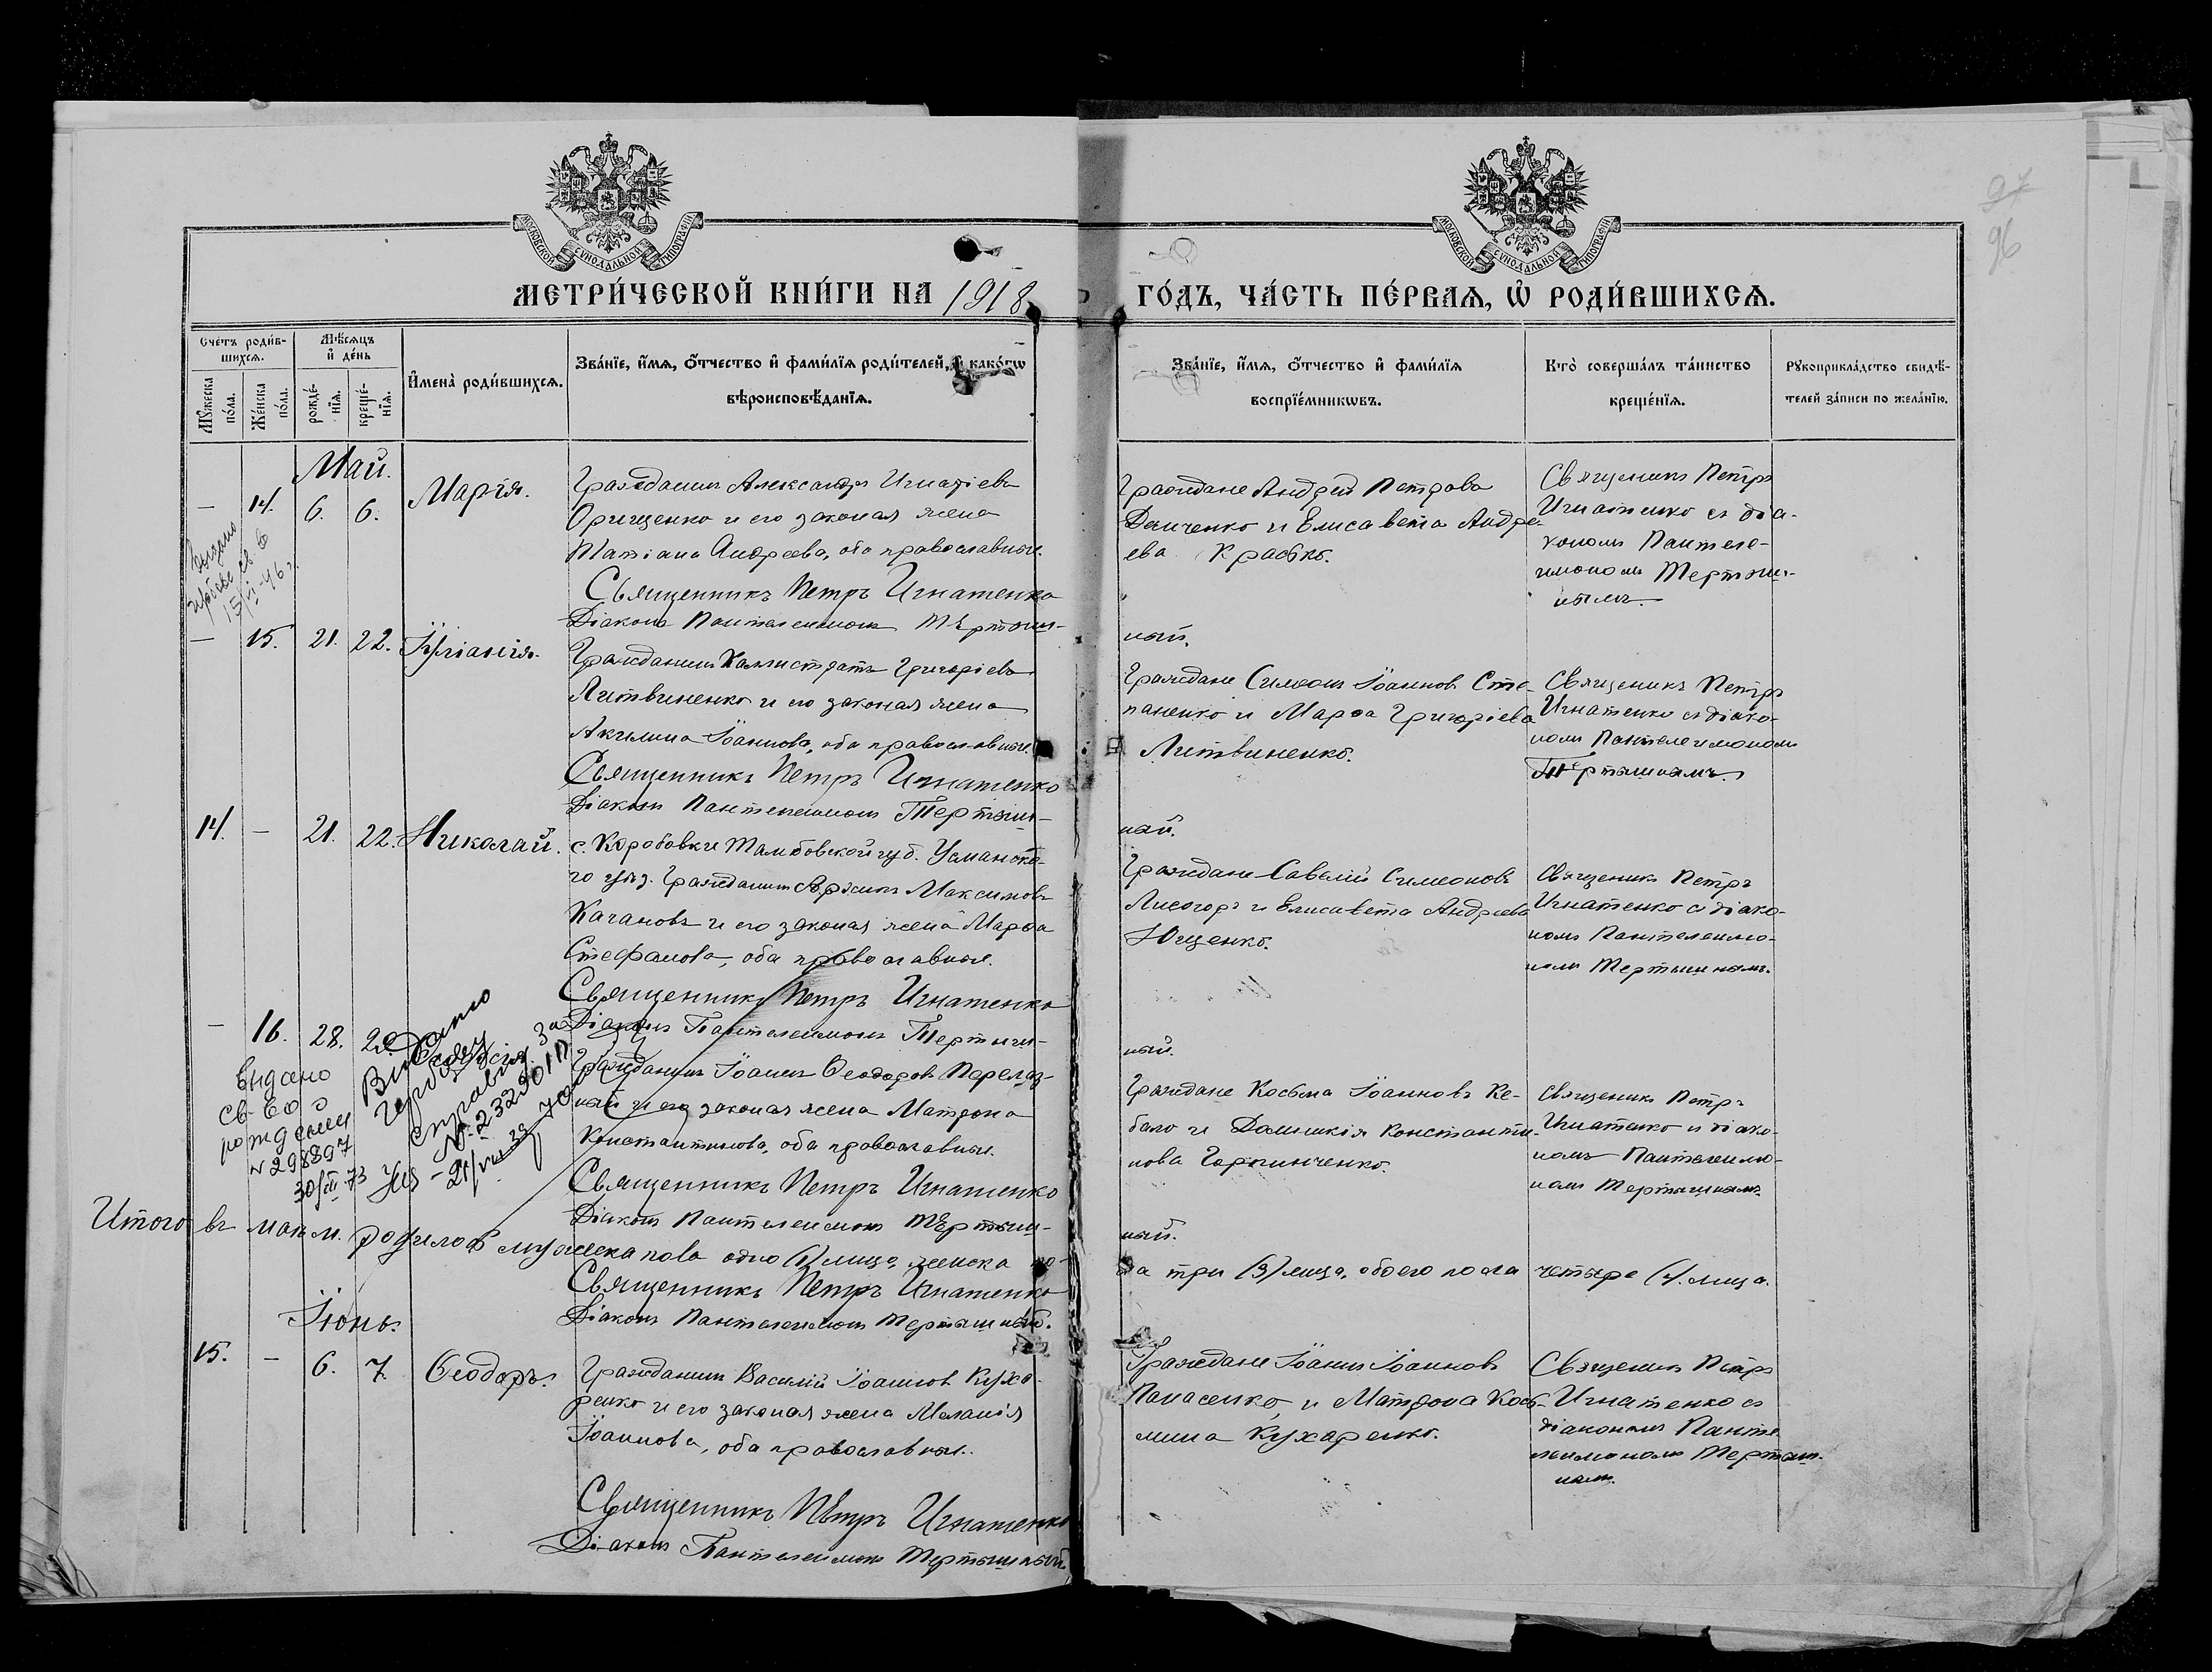 МОСКОВСКОЙ СѴНОДАЛЬНОЙ ТИПОГРАФІИ
МОСКОВСКОЙ СѴНОДАЛЬНОЙ ТИПОГРАФІИ
97
96
МЕТРИ́ЧЕСКОЙ КНИ́ГИ НА 1918
ГО́ДЪ, ЧА́СТЬ ПЕ́РВАѦ, Ѡ҆ РОДИ́ВШИХСѦ.
Сче́тъ роди́в-
шихсѧ.
Мꙋ́жеска
по́ла.
Же́нска
по́ла.
Мѣ́сѧцъ
и҆ де́нь
рожде́-
нїѧ.
креще́-
нїѧ.
И҆мена̀ роди́вшихсѧ.
Зва́нїе, и҆́мѧ, ѻ҆́тчество и҆ фами́лїѧ роди́телей, и҆ како́гѡ
вѣроисповѣ́данїѧ.
Зва́нїе, и҆́мѧ, ѻ҆́тчество и҆ фами́лїѧ
воспрїе́мникѡвъ.
Кто̀ соверша́лъ та́инство
креще́нїѧ.
Рꙋкоприкла́дство свидѣ́-
телей за́писи по жела́нїю.
Май.
— 14. 6. 6. Марія.
Гражданинъ Александръ Игнатіевъ
Орищенко и его законая жена
Татіана Андреева, оба православные.
Священникъ Петръ Игнатенко
Діаконъ Пантелеимонъ Тертыш-
ный.
Граждане Андрей Петровъ
Демченко и Елисавета Андре-
ева Крабко.
Священикъ Петръ
Игнатенко съ діа-
кономъ Пантеле-
имономъ Тертыш-
нымъ.
Выдано
15/VI-46 г.
— 15. 21. 22. Іуліанія.
Гражданинъ Каллистратъ Григоріевъ
Литвиненко и его законая жена
Акилина Іоаннова, оба православные.
Священникъ Петръ Игнатенко
Діаконъ Пантелеимонъ Тертыш-
ный.
Граждане Симеонъ Іоанновъ Сте-
паненко и Марѳа Григоріева
Литвиненко.
Священикъ Петръ
Игнатенко съ діако-
номъ Пантелеимономъ
Тертышнымъ.
14. — 21. 22. Николай.
с. Коробовки Тамбовской губ. Усманска-
го уѣз. Гражданинъ Максимовъ
Качановъ и его законая жена Марѳа
Стефанова, оба православные.
Священникъ Петръ Игнатенко
Діаконъ Пантелеимонъ Тертыш-
ный.
Граждане Савелій Симеоновъ
Лисогоръ и Елисавета Андреева
Ющенко.
Священикъ Петръ
Игнатенко съ діако-
номъ Пантелеимо-
номъ Тертышнымъ.
— 16. 28. 29.
Гражданинъ Іоаннъ Ѳеодоровъ Перелаз-
ный и его законая жена Матрона
Константинова, оба православные.
Священникъ Петръ Игнатенко
Діаконъ Пантелеимонъ Тертыш-
ный.
Граждане Косьма Іоанновъ Ке-
бало и Домникія Константи-
нова Горпинченко.
Священикъ Петръ
Игнатенко съ діако-
номъ Пантелеимо-
номъ Тертышнымъ.
Видано
св-во о
рождении
№ 298897
30/III-73
Видано
Гербову
справку за
№ 232901
21/VIII 70
Итого въ маѣ м. родилось мужеска пола одно (1) лицо, женска по-
ла три (3) лица, обоего пола четыре (4) лица.
Священникъ Петръ Игнатенко
Діаконъ Пантелеимонъ Тертышный.
Іюнь.
15. — 6. 7. Ѳеодоръ.
Гражданинъ Василій Іоанновъ Куха-
ренко и его законая жена Меланія
Іоаннова, оба православные.
Священникъ Петръ Игнатенко
Діаконъ Пантелеимонъ Тертышный.
Граждане Іоаннъ Іоанновъ
Панасенко, и Матрона Кось-
мина Кухаренко.
Священикъ Петръ
Игнатенко съ
діакономъ Панте-
леимономъ Тертыш-
нымъ.